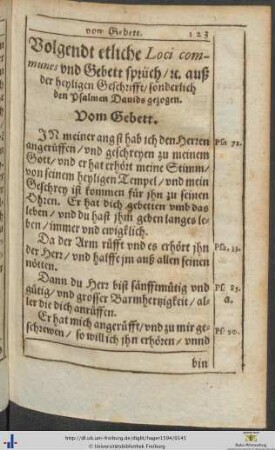 von Gebett. 123
Volgendt etliche Loci com-
munes vnd Gebett sprüch/ ꝛc. auß
der heyligen Geschrifft/ sonderlich
den Psalmen Dauids gezogen.
Vom Gebett.
IN meiner angst hab ich den Herren
angerüffen/ vnd geschreyen zu meinem
Gott/ vnd er hat erhört meine Stimm/
von seinem heyligen Tempel/ vnd mein
Geschrey ist kommen für jhn zu seinen
Ohren. Er hat dich gebetten vmb das
leben/ vnd du hast jhm geben langes le-
ben/ immer vnd ewigklich.
Da der Arm rüfft vnd es erhört jhn
der Herr/ vnd halffe jm auß allen seinen
nötten.
Dann du Herr bist sänfftmütig vnd
gütig/ vnd grosser Barmhertzigkeit/ al-
ler die dich anrüffen.
Er hat mich angerüfft/ vnd zu mir ge-
schrewen/ so will ich jhn erhören/ vnnd
bin
Psa.
Psa. 33.
Ps. 85.
a.
Ps. 90.
http://dl.ub.uni-freiburg.de/diglit/hager1594/0145
© Universitätsbibliothek Freiburg
Baden-Württemberg